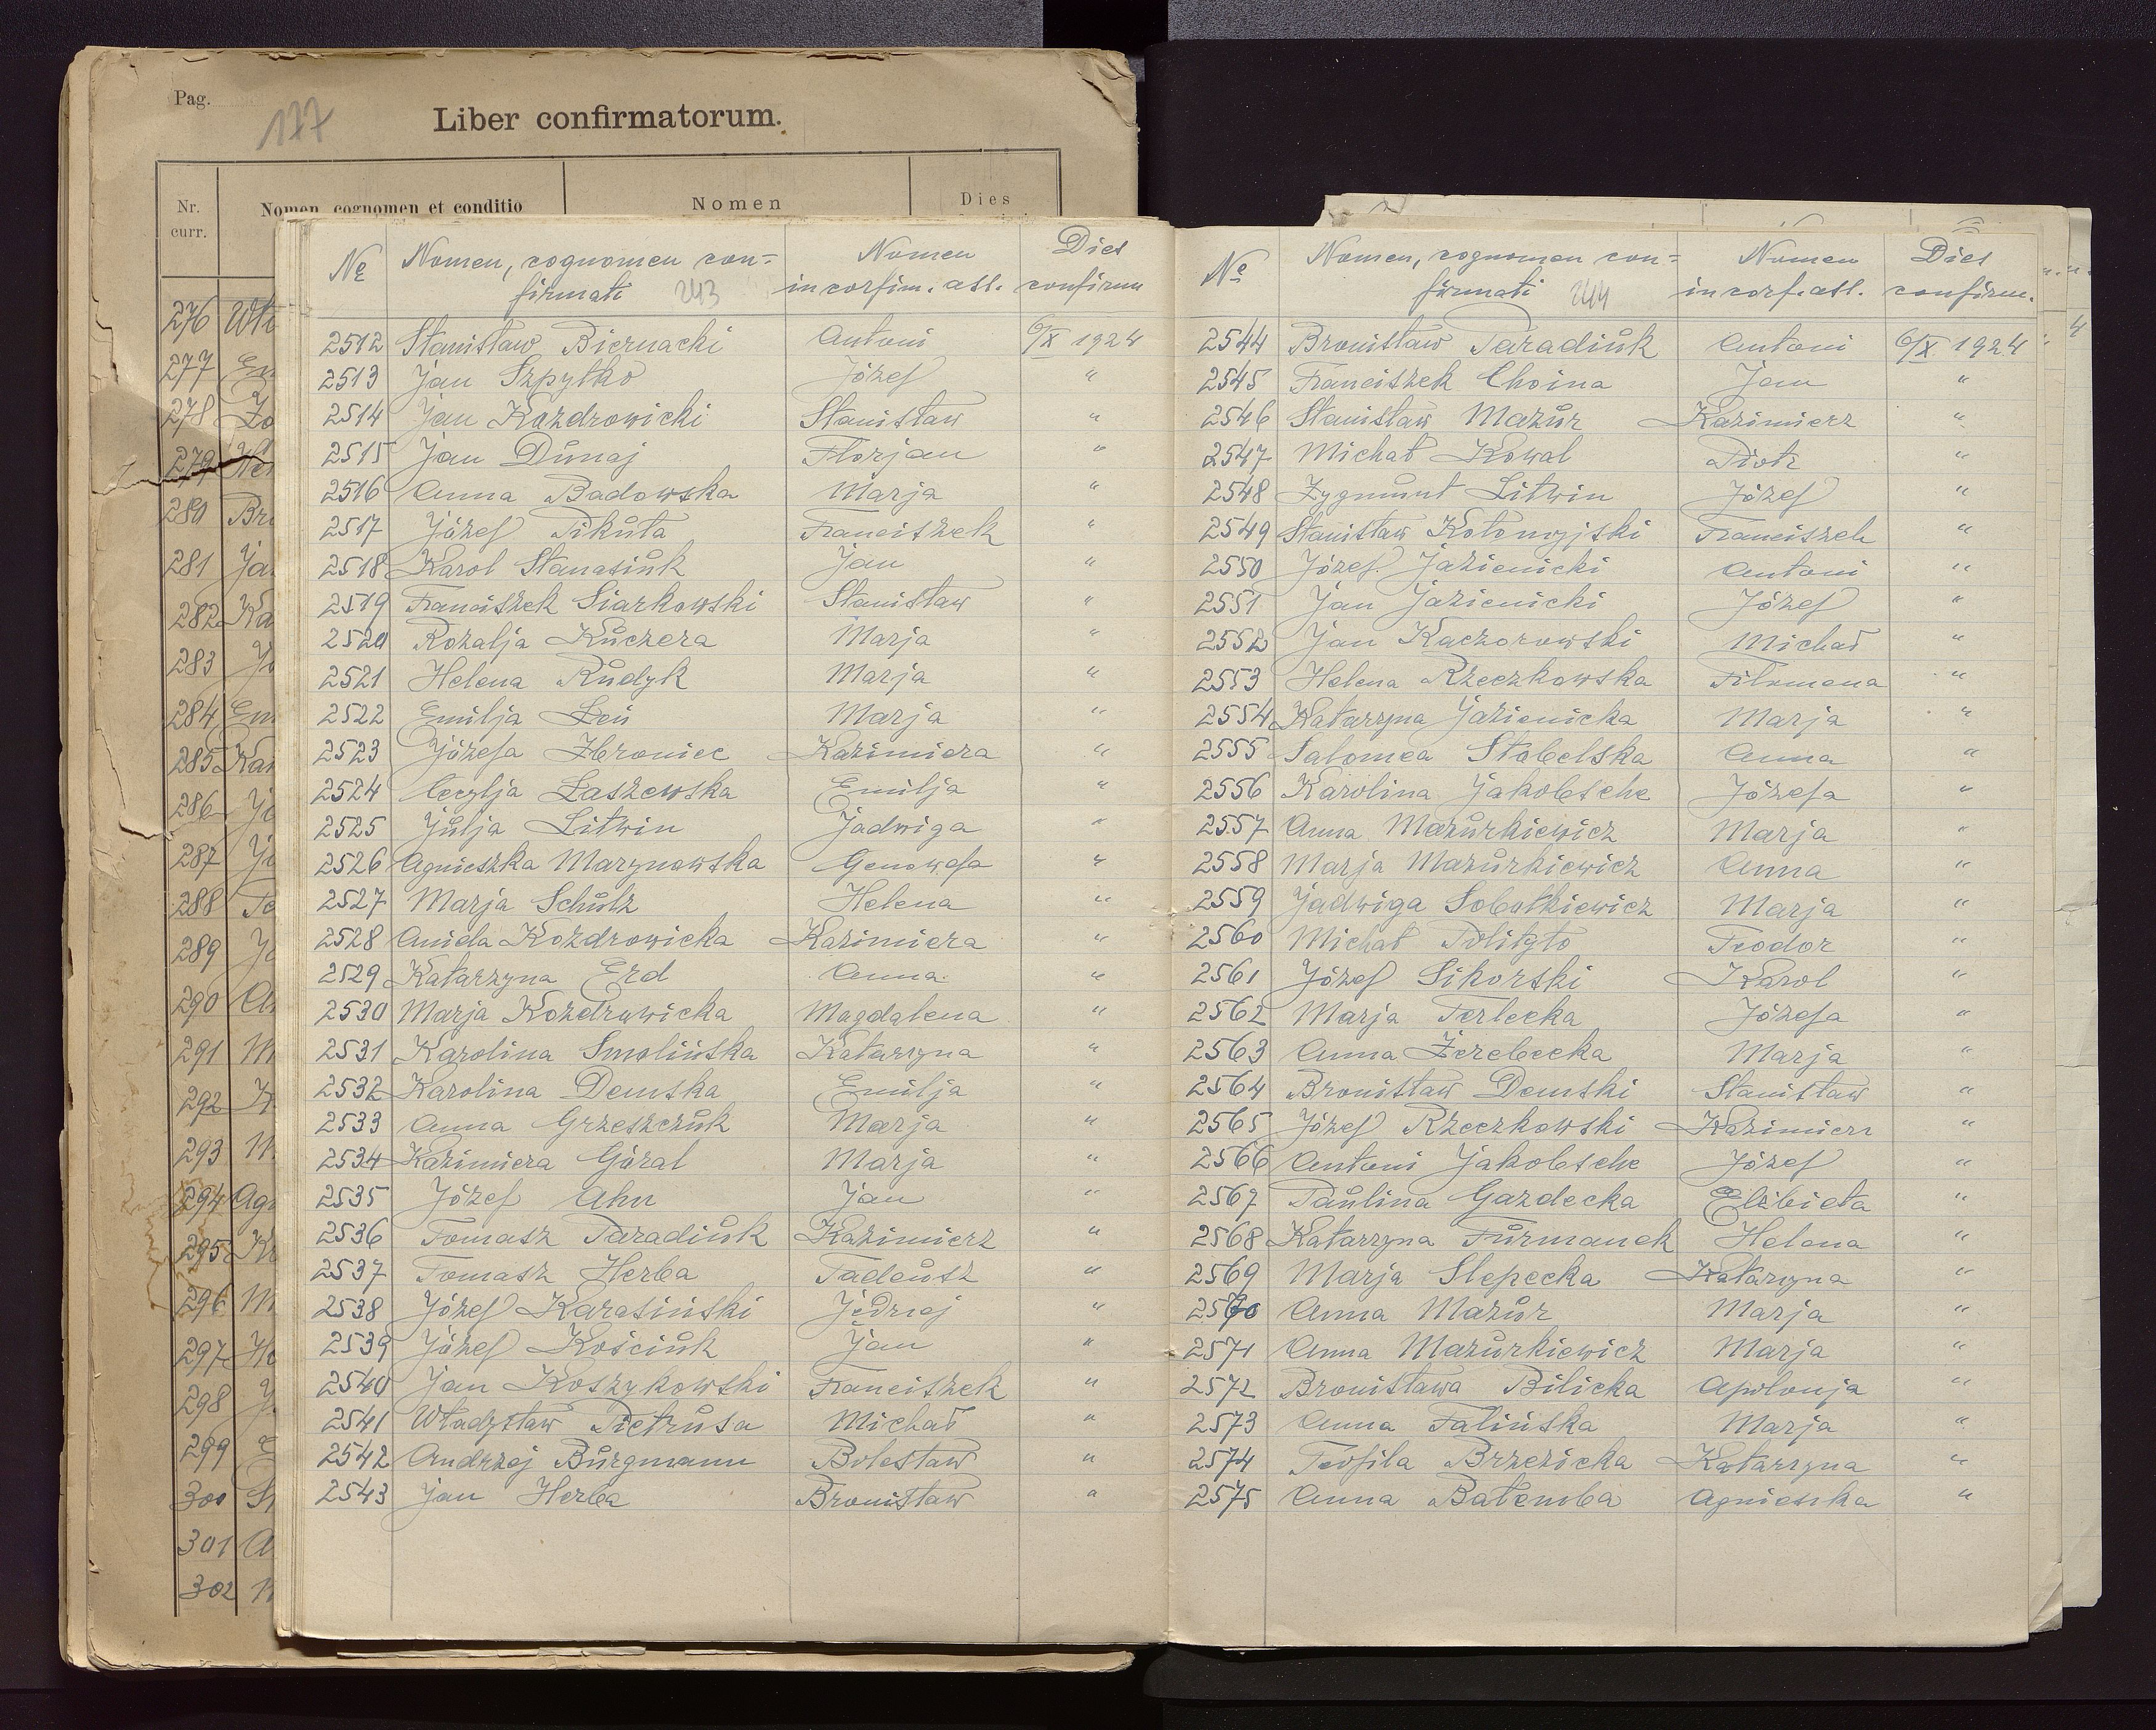 Pag.
177
Liber confirmatorum.
Nr. curr.
Nomen, cognomen et conditio
Nomen
Dies
276
277
278
279
280
281
282
283
284
285
286
287
288
289
290
291
292
293
294
295
296
297
298
299
300
301
302
№ Nomen, cognomen con= Nomen Dies
firmati 243 in corfim. ass. confirm
2512 Stanisław Biernacki Antoni 6/X 1924
2513 Jan Szpytko Józef "
2514 Jan Kozdrowicki Stanisław "
2515 Jan Dunaj Florjan "
2516 Anna Badowska Marja "
2517 Józef Pikuta Franciszek "
2518 Karol Stanasiuk Jan "
2519 Franciszek Siarkowski Stanisław "
2520 Rozalja Kuczera Marja "
2521 Helena Rudyk Marja "
2522 Emilja Leń Marja "
2523 Józefa Zbroniec Kazimiera "
2524 Cecylja Laszewska Emilja "
2525 Julja Litwin Jadwiga "
2526 Agnieszka Marynowska Genowefa "
2527 Marja Schulz Helena "
2528 Aniela Kozdrowicka Kazimiera "
2529 Katarzyna Erd Anna "
2530 Marja Kozdrowicka Magdalena "
2531 Karolina Smolińska Katarzyna "
2532 Karolina Demska Emilja "
2533 Anna Grzeszczuk Marja "
2534 Kazimiera Góral Marja "
2535 Józef Ahn Jan "
2536 Tomasz Paradiuk Kazimierz "
2537 Tomasz Herba Tadeusz "
2538 Józef Karasiński Jędrzej "
2539 Józef Kościuk Jan "
2540 Jan Koszykowski Franciszek "
2541 Władysław Pietrusa Michał "
2542 Andrzej Burgmann Bolesław "
2543 Jan Herba Bronisław "
№ Nomen, cognomen con= Nomen Dies
firmati 244 in corf. ass. confirm.
2544 Bronisław Paradiuk Antoni 6/X 1924
2545 Franciszek Choina Jan "
2546 Stanisław Mazur Kazimierz "
2547 Michał Kowal Piotr "
2548 Zygmunt Litwin Józef "
2549 Stanisław Kołomyjski Franciszek "
2550 Józef Jazienicki Antoni "
2551 Jan Jazienicki Józef "
2552 Jan Kaczorowski Michał "
2553 Helena Rzeczkowska Filomena "
2554 Katarzyna Jazienicka Marja "
2555 Salomea Stobelska Anna "
2556 Karolina Jakobsche Józefa "
2557 Anna Mazurkiewicz Marja "
2558 Marja Mazurkiewicz Anna "
2559 Jadwiga Sobotkiewicz Marja "
2560 Michał Polityło Teodor "
2561 Józef Sikorski Karol "
2562 Marja Terlecka Józefa "
2563 Anna Żerebecka Marja "
2564 Bronisław Demski Stanisław "
2565 Józef Rzeczkowski Kazimierz "
2566 Antoni Jakobsche Józef "
2567 Paulina Gazdecka Elżbieta "
2568 Katarzyna Furmanek Helena "
2569 Marja Slepecka Katarzyna "
2570 Anna Mazur Marja "
2571 Anna Mazurkiewicz Marja "
2572 Bronisława Bilicka Apolonja "
2573 Anna Falińska Marja "
2574 Teofila Brzezicka Katarzyna "
2575 Anna Batemba Agnieszka "